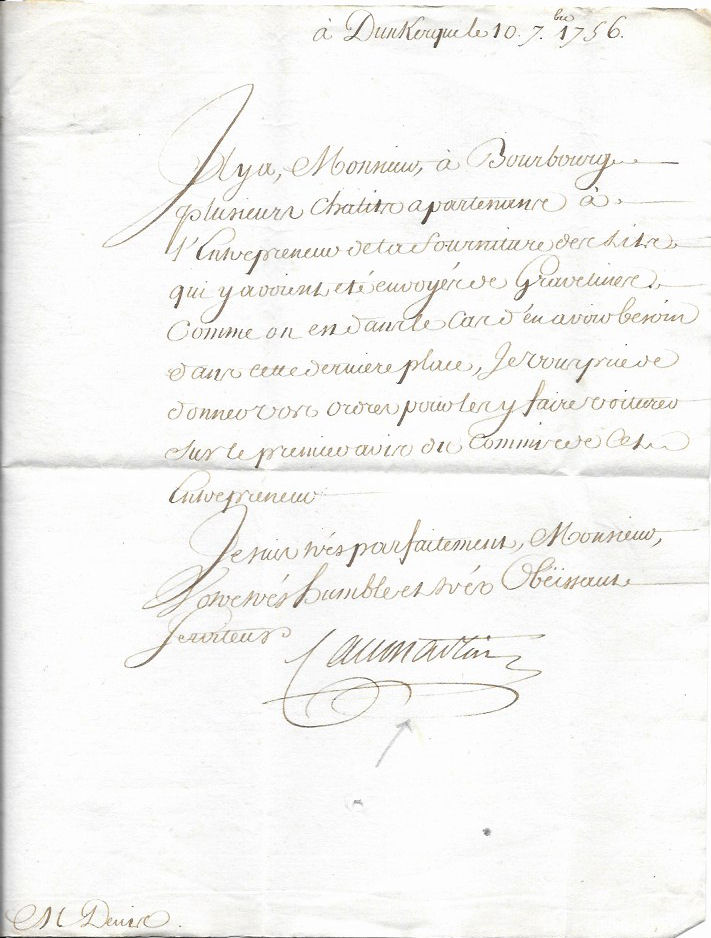 à Dunkerque le 10. 7.bre 1756.
Il y a, Monsieur, à Bourbourg
plusieurs Chalits apartenans à
l'Entrepreneur de la fourniture des Lits
qui y avoient eté envoyés de Gravelines.
Comme on est dans le Cas d'en avoir besoin
dans cette derniere place, Je vous prie de
donner vos ordres pour les y faire voiturer
sur le premier avis du Commis de Cet
Entrepreneur
Je suis trés parfaitement, Monsieur,
Votre trés humble et trés Obëissant
Serviteur
Caumartin
M Denis.